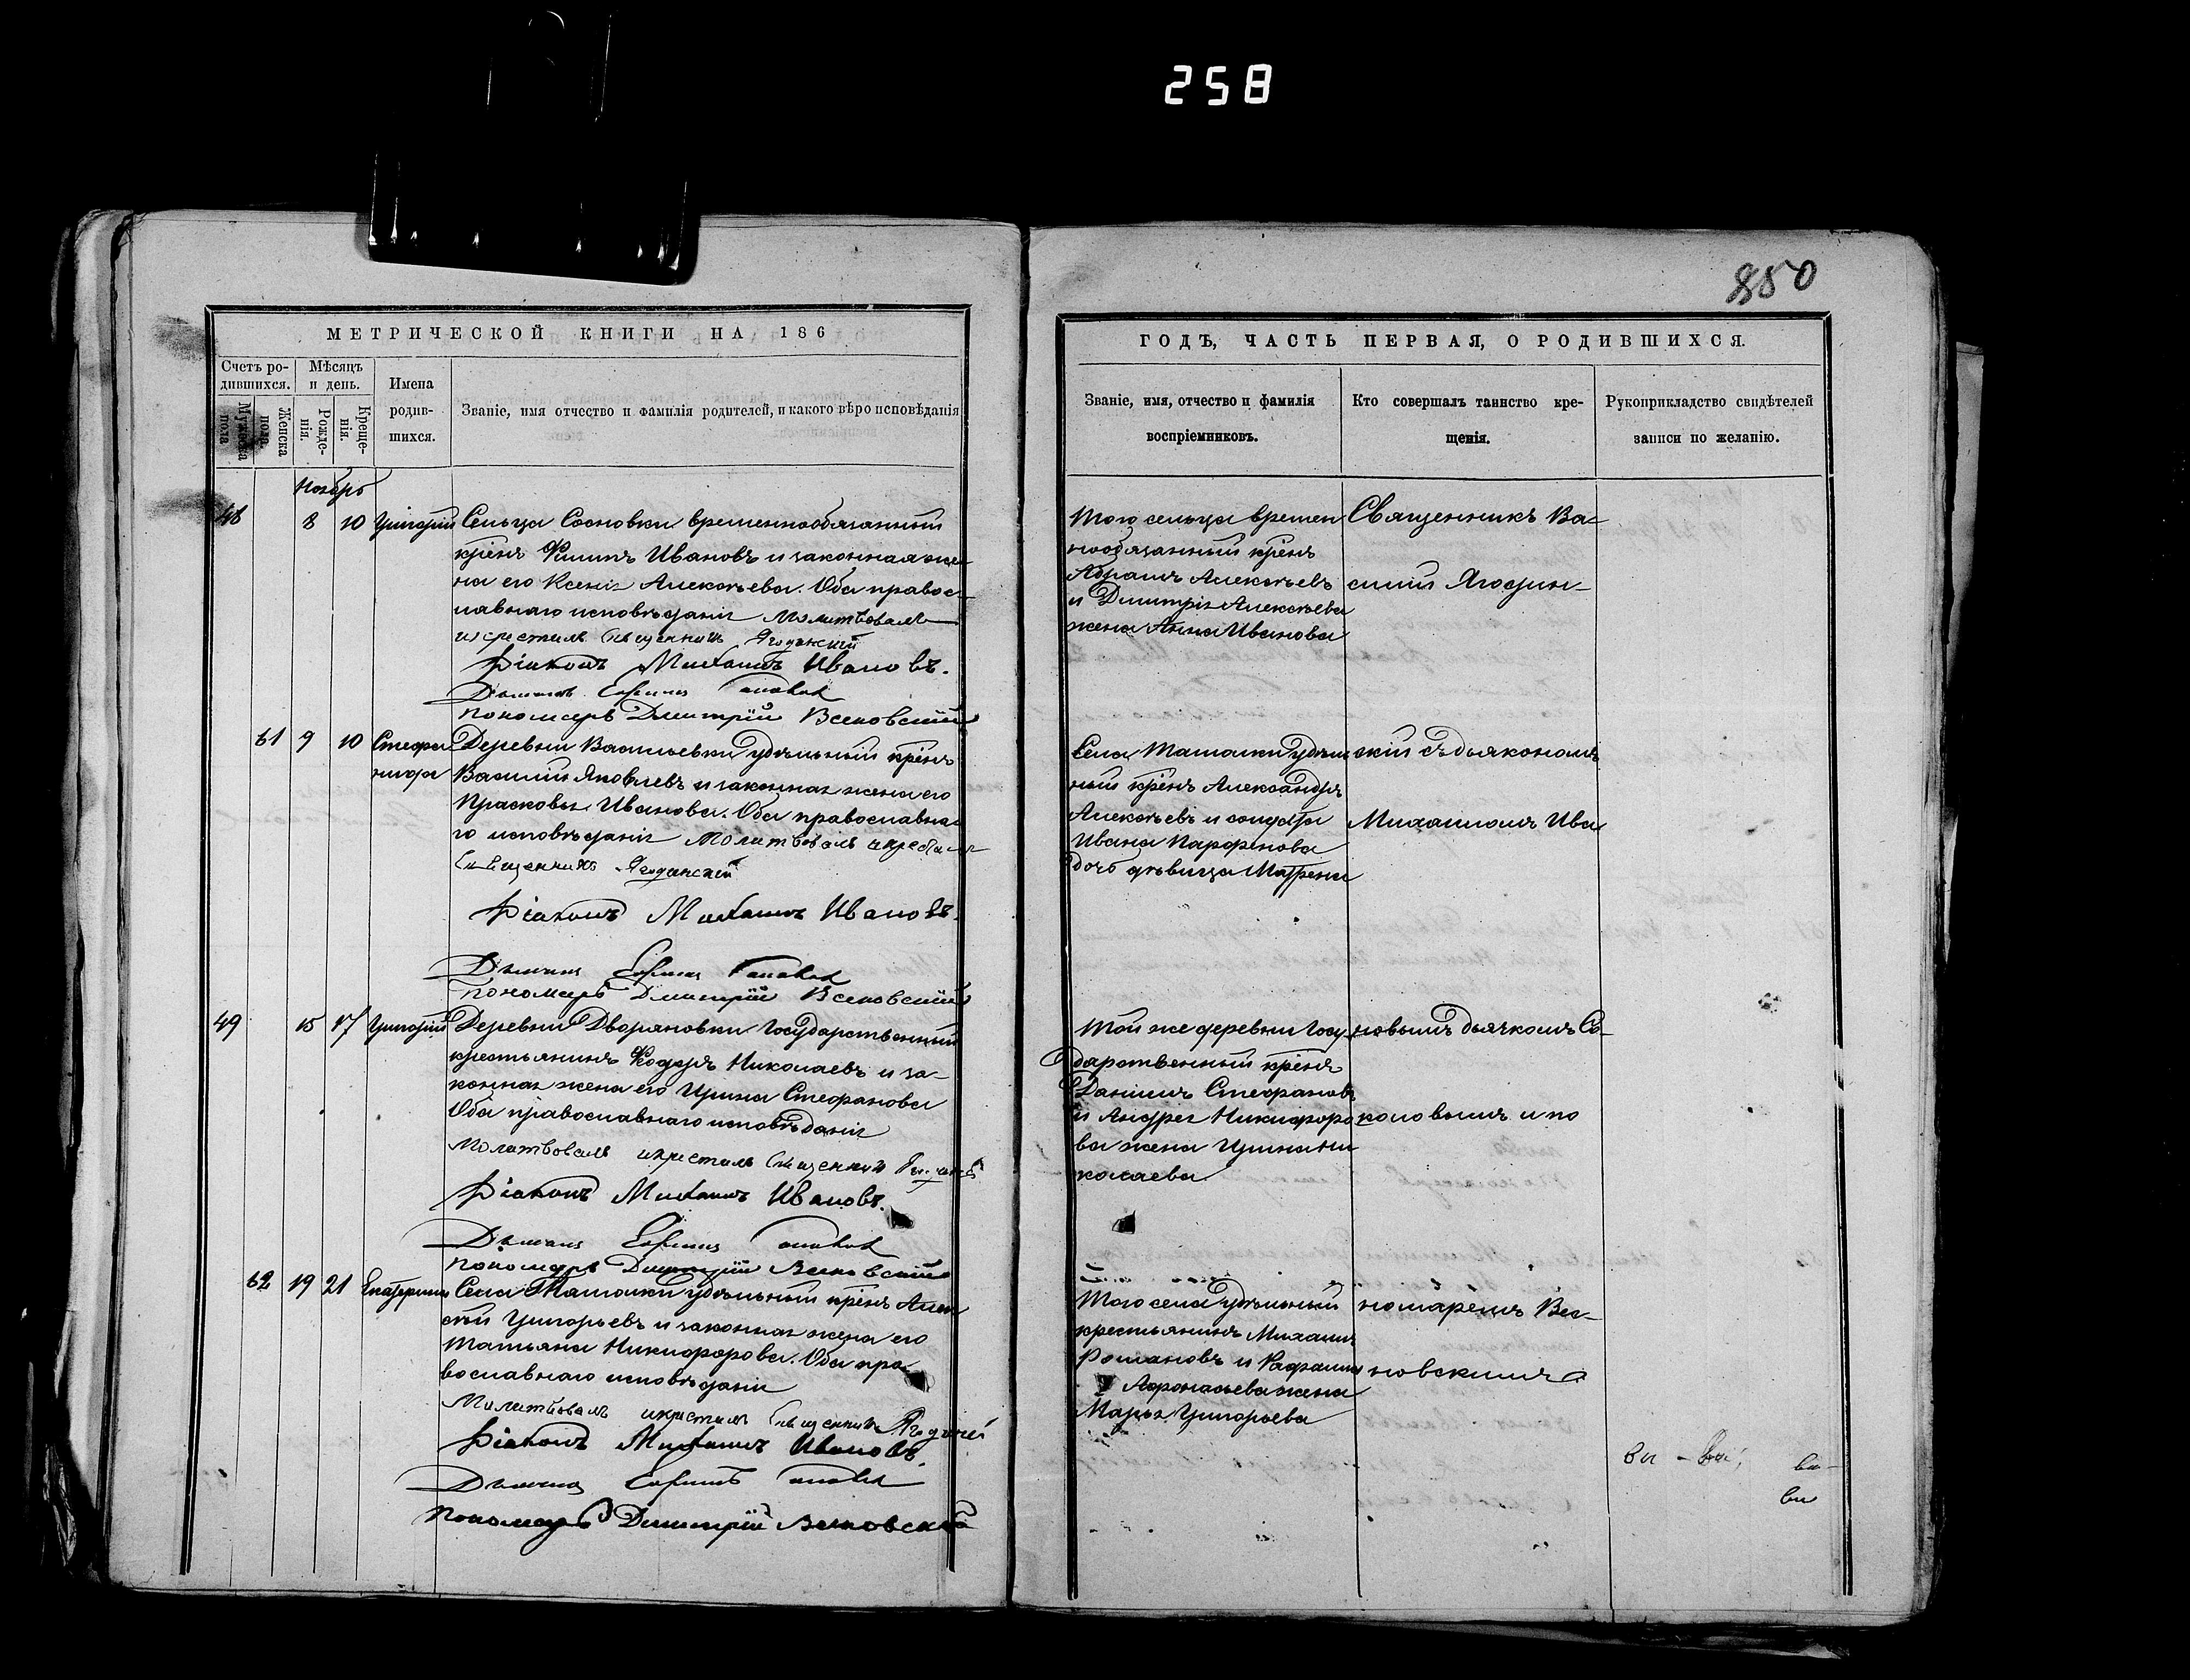 258
850
МЕТРИЧЕСКОЙ КНИГИ НА 186
Счетъ ро-
дившихся.
Мужеска
пола
Женска
пола.
Мѣсяцъ
и день.
Рожде-
нія.
Креще-
нія.
Имена
родив-
шихся.
Званіе, имя отчество и фамилія родителей, и какого вѣро исповѣданія
Ноябрь
48 8 10 Григорій Сельца Сосновки временнообязанный
крѣнъ Филипъ Ивановъ и законная же
на его Ксенія Алексѣева. Оба правос-
лавнаго исповѣданія Молитвовалъ
и крестилъ Священникъ Ягодинскій
Діаконъ Михаилъ Ивановъ.
Дьячекъ
Пономарь Димитрій Всеновскій
61 9 10 Стефа Деревни Васильевки удѣльный крѣнъ
нида Василій Яковлевъ и законная жена его
Прасковья Иванова. Оба православна
го исповѣданія Молитвовалъ и крестилъ
Священникъ Ягодинскій
Діаконъ Михаилъ Ивановъ.
Дьячекъ
Пономарь Димитрій Всеновскій
49 15 17 Григорій Деревни Дворяновки Государственный
крестьянинъ Ѳедоръ Николаевъ и за-
конная жена его Ирина Стефанова
Оба православнаго исповѣданія
Молитвовалъ и крестилъ Священникъ
Діаконъ Михаилъ Ивановъ.
Дьячекъ
Пономарь Димитрій Всеновскій
62 19 21 Екатерина Села Ташолки удѣльный крѣнъ Алек
сѣй Григорьевъ и законная жена его
Татьяна Никифорова. Оба пра
вославнаго исповѣданія
Молитвовалъ и крестилъ Священникъ
Діаконъ Михаилъ Ивановъ.
Дьячекъ
Пономарь Димитрій Всеновскій
ГОДѢ, ЧАСТЬ ПЕРВАЯ, О РОДИВШИХСЯ.
Званіе, имя, отчество и фамилія
воспріемниковъ.
Кто совершалъ таинство кре-
щенія.
Рукоприкладство свидѣтелей
записи по желанію.
Того сельца времен
нообязанный крѣнъ
Абрамъ Алексѣевъ
и Димитрія Алексѣева
жена Анна Иванова
Села Ташолки удѣль
ный крѣнъ Александръ
Алексѣевъ и солдата
Ивана Парфенова
дочь дѣвица Матрена
Той же деревни Госу
дарственный крѣнъ
Даніилъ Стефановъ
и Андрея Никифоро
ва жена Ирина Ни
колаева
Того села удѣльный
крестьянинъ Михаилъ
Романовъ и Рафаила
Афонасьева жена
Марья Григорьева
Священникъ Ва-
силій Ягодин-
скій съ дьякономъ
Михаиломъ Ива
новымъ дьячкомъ Со-
коловымъ и по
номаремъ Все-
новскимъ